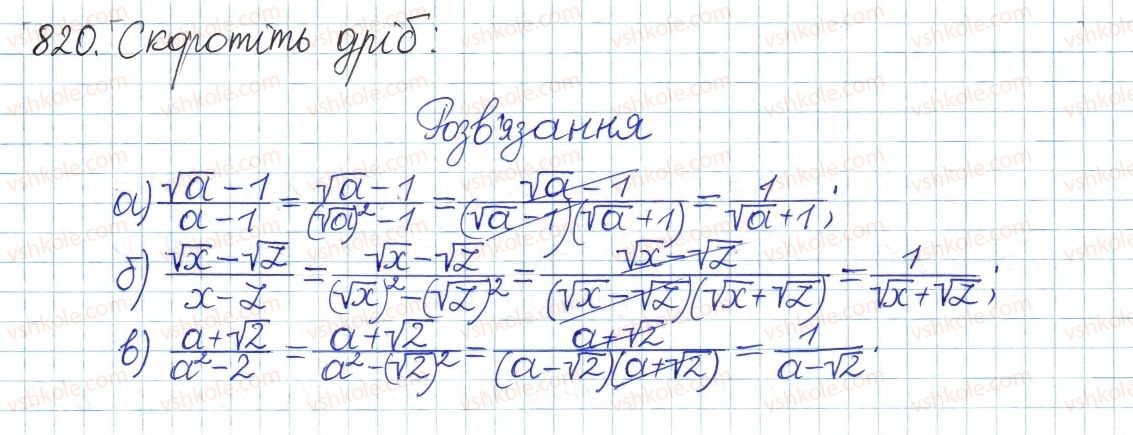 820. Скоротіть дріб:
Розв'язання
а) (√a - 1)/(a - 1) = (√a - 1)/((√a)² - 1) = (√a - 1)/((√a - 1)(√a + 1)) = 1/(√a + 1);
б) (√x - √z)/(x - z) = (√x - √z)/((√x)² - (√z)²) = (√x - √z)/((√x - √z)(√x + √z)) = 1/(√x + √z);
в) (a + √2)/(a² - 2) = (a + √2)/(a² - (√2)²) = (a + √2)/((a - √2)(a + √2)) = 1/(a - √2).